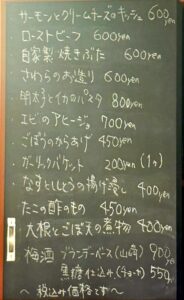 ・サーモンとクリームチーズのキッシュ 600yen
・ローストビーフ 600yen
・自家製焼きぶた 600yen
・さわらのお造り 600yen
・明太子とイカのパスタ 800yen
・エビのアヒージョ 700yen
・ごぼうのからあげ 450yen
・ガーリックバケット 200yen (1ヶ)
・なすとししとうの揚げ浸し 400yen
・たこの酢のもの 450yen
・大根とごぼ天の煮物 400yen
・梅酒 ブランデーベース(山崎) 900yen
黒糖仕込み(4ヶ月) 550yen
〜税込み価格です〜